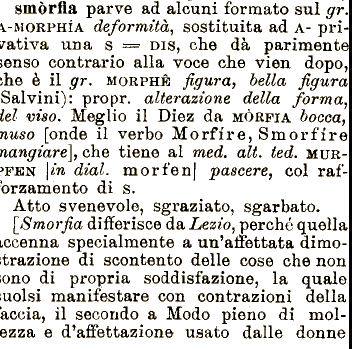 smòrfia parve ad alcuni formato sul gr.
A-MORPHÍA deformità, sostituita ad A- pri-
vativa una S = DIS, che dà parimente
senso contrario alla voce che vien dopo,
che è il gr. MORPHÊ figura, bella figura
(Salvini): propr. alterazione della forma,
del viso. Meglio il Diez da MÒRFIA bocca,
muso [onde il verbo Morfíre, Smorfíre
mangiare], che tiene al med. alt. ted. MUR-
PFEN |in dial. morfen| pascere, col raf-
forzamento di S.
Atto svenevole, sgraziato, sgarbato.
[Smorfia differisce da Lezio, perché quella
accenna specialmente a un'affettata dimo-
strazione di scontento delle cose che non
sono di propria soddisfazione, la quale
suolsi manifestare con contrazioni della
faccia, il secondo a Modo pieno di mol-
lezza e d'affettazione usato dalle donne